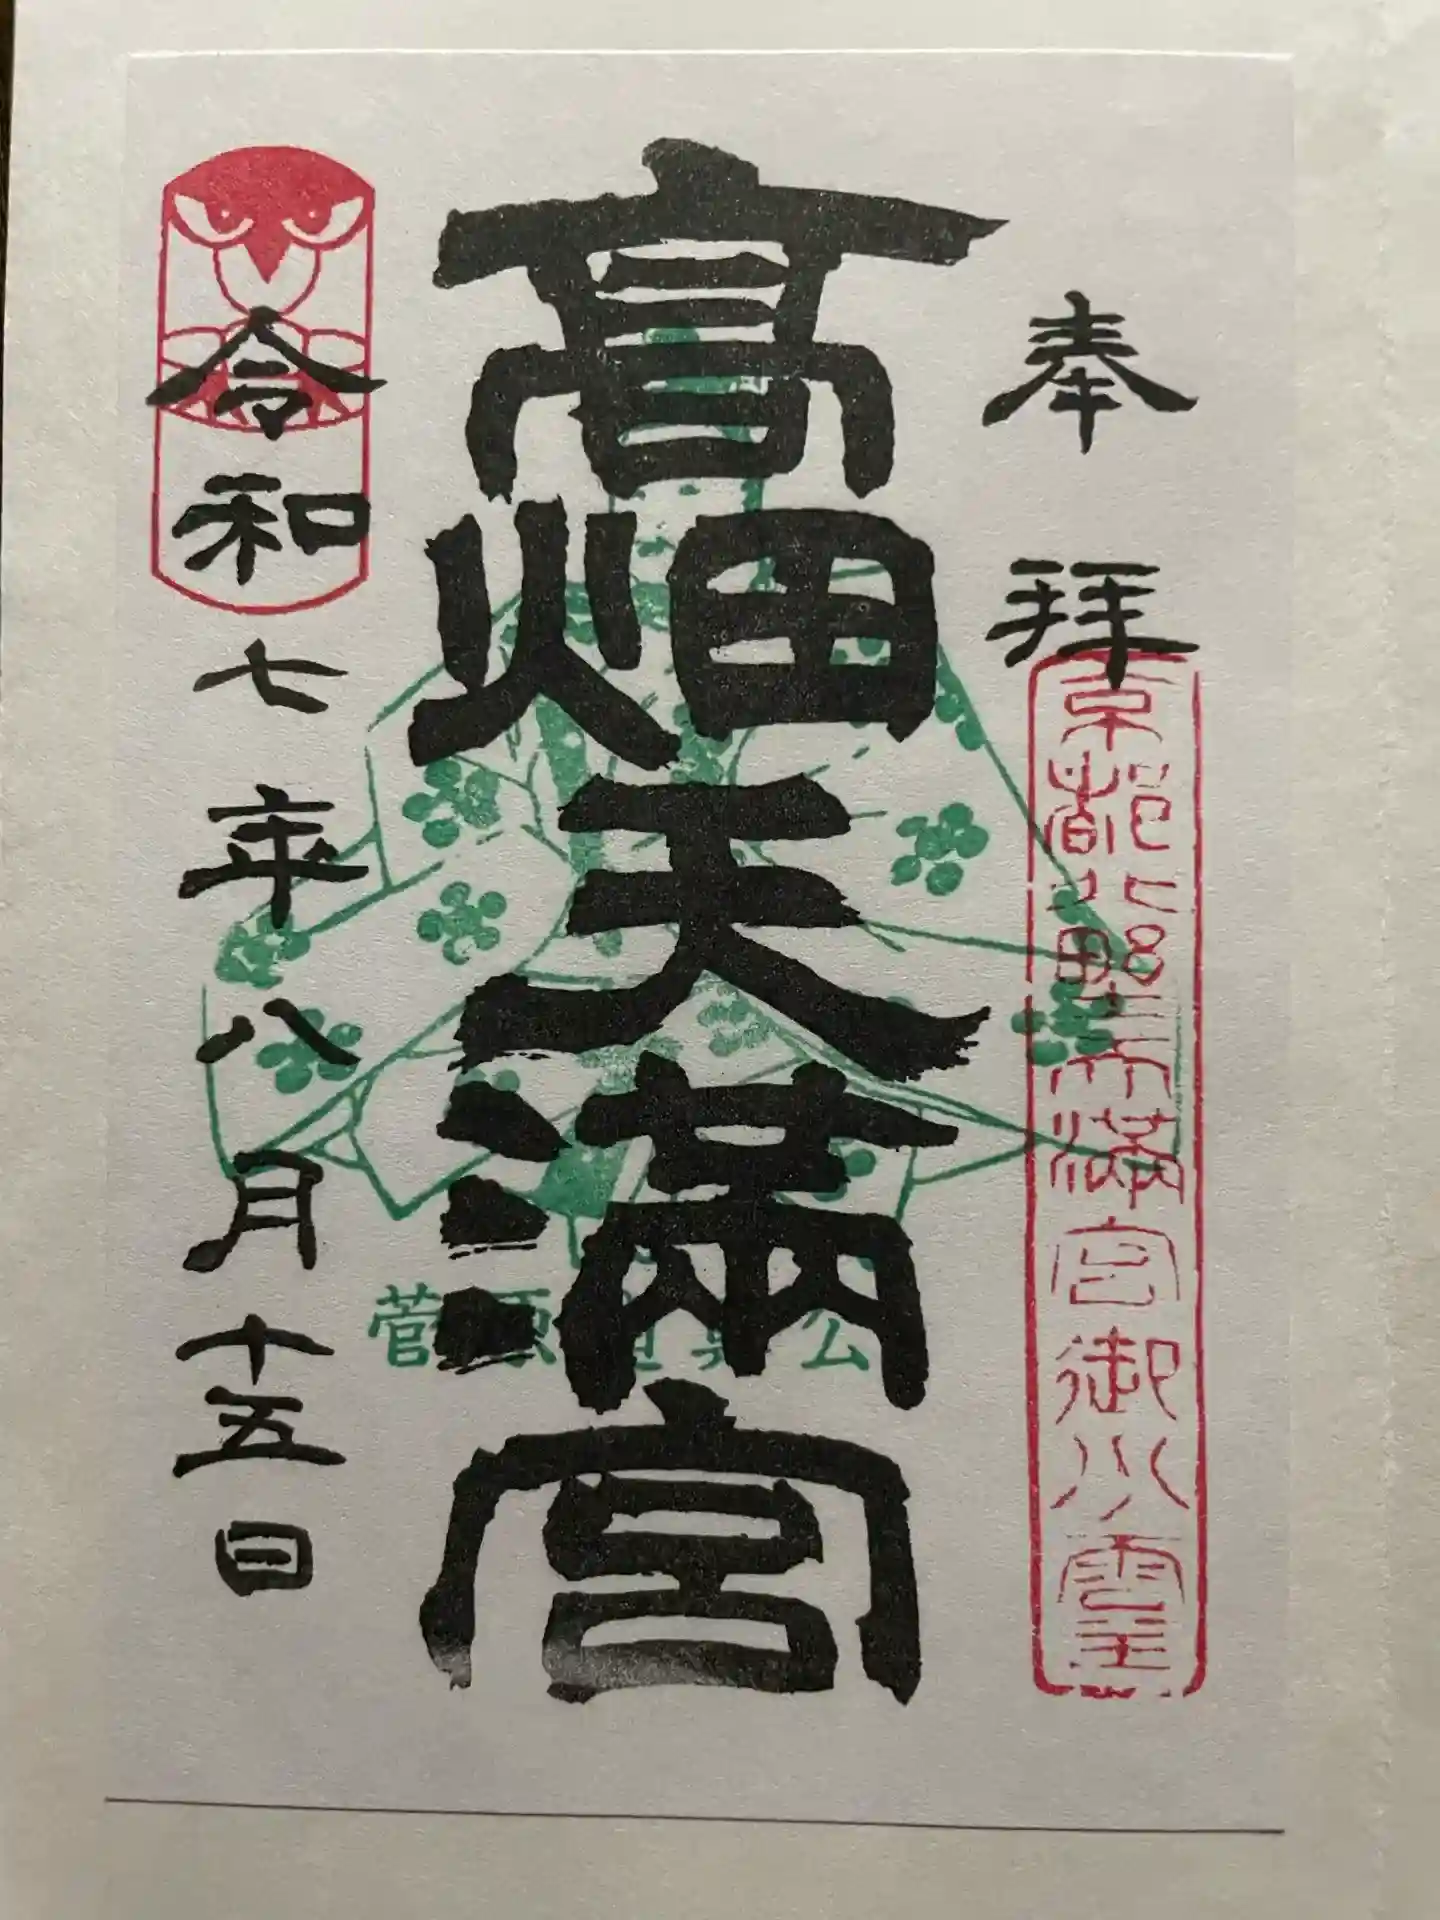 奉拝
京都北野天満宮御分霊
高畑天満宮
菅原道真公
令和七年八月十五日